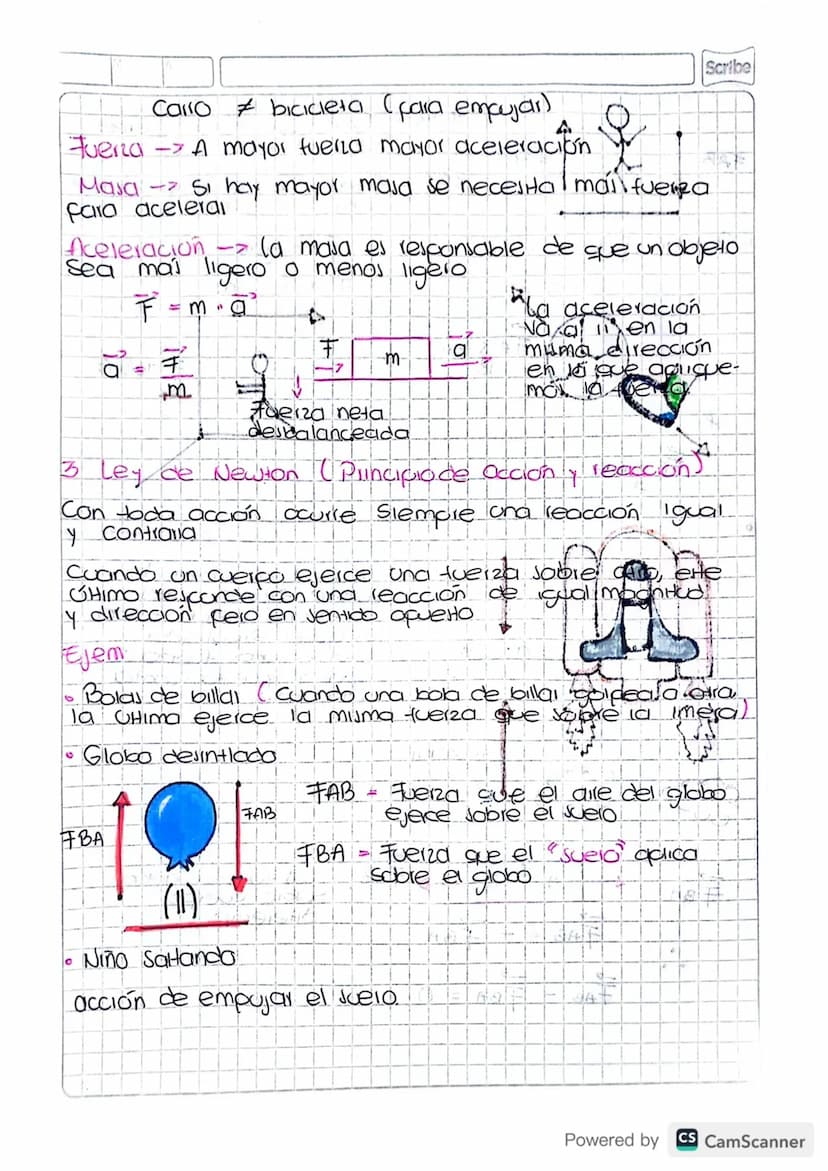 Scribe
Carro ≠ bicicleta (para empujar)
Fuerza --> A mayor fuerza mayor aceleración
Masa --> Si hay mayor masa se necesita más fuerza
para acelerar
Aceleración --> la masa es responsable de que un objeto
sea más ligero o menos ligero
F = m · a
a = F / m
F
m
a
Fuerza neta
desbalanceada
La aceleración
va a ir en la
misma dirección
en la que aplique-
mos la fuerza
3 Ley de Newton (Principio de acción y reacción)
Con toda acción ocurre siempre una reacción igual
y contraria
Cuando un cuerpo ejerce una fuerza sobre otro, este
último responde con una reacción de igual magnitud
y dirección pero en sentido opuesto
Ejem
• Bolas de billar (Cuando una bola de billar golpea la otra,
la última ejerce la misma fuerza que sobre la 1mera)
• Globo desinflado
FBA
FAB
FAB = Fuerza que el aire del globo
ejerce sobre el suelo
FBA = Fuerza que el "suelo" aplica
sobre el globo
• Niño saltando
acción de empujar el suelo
Powered by CS CamScanner